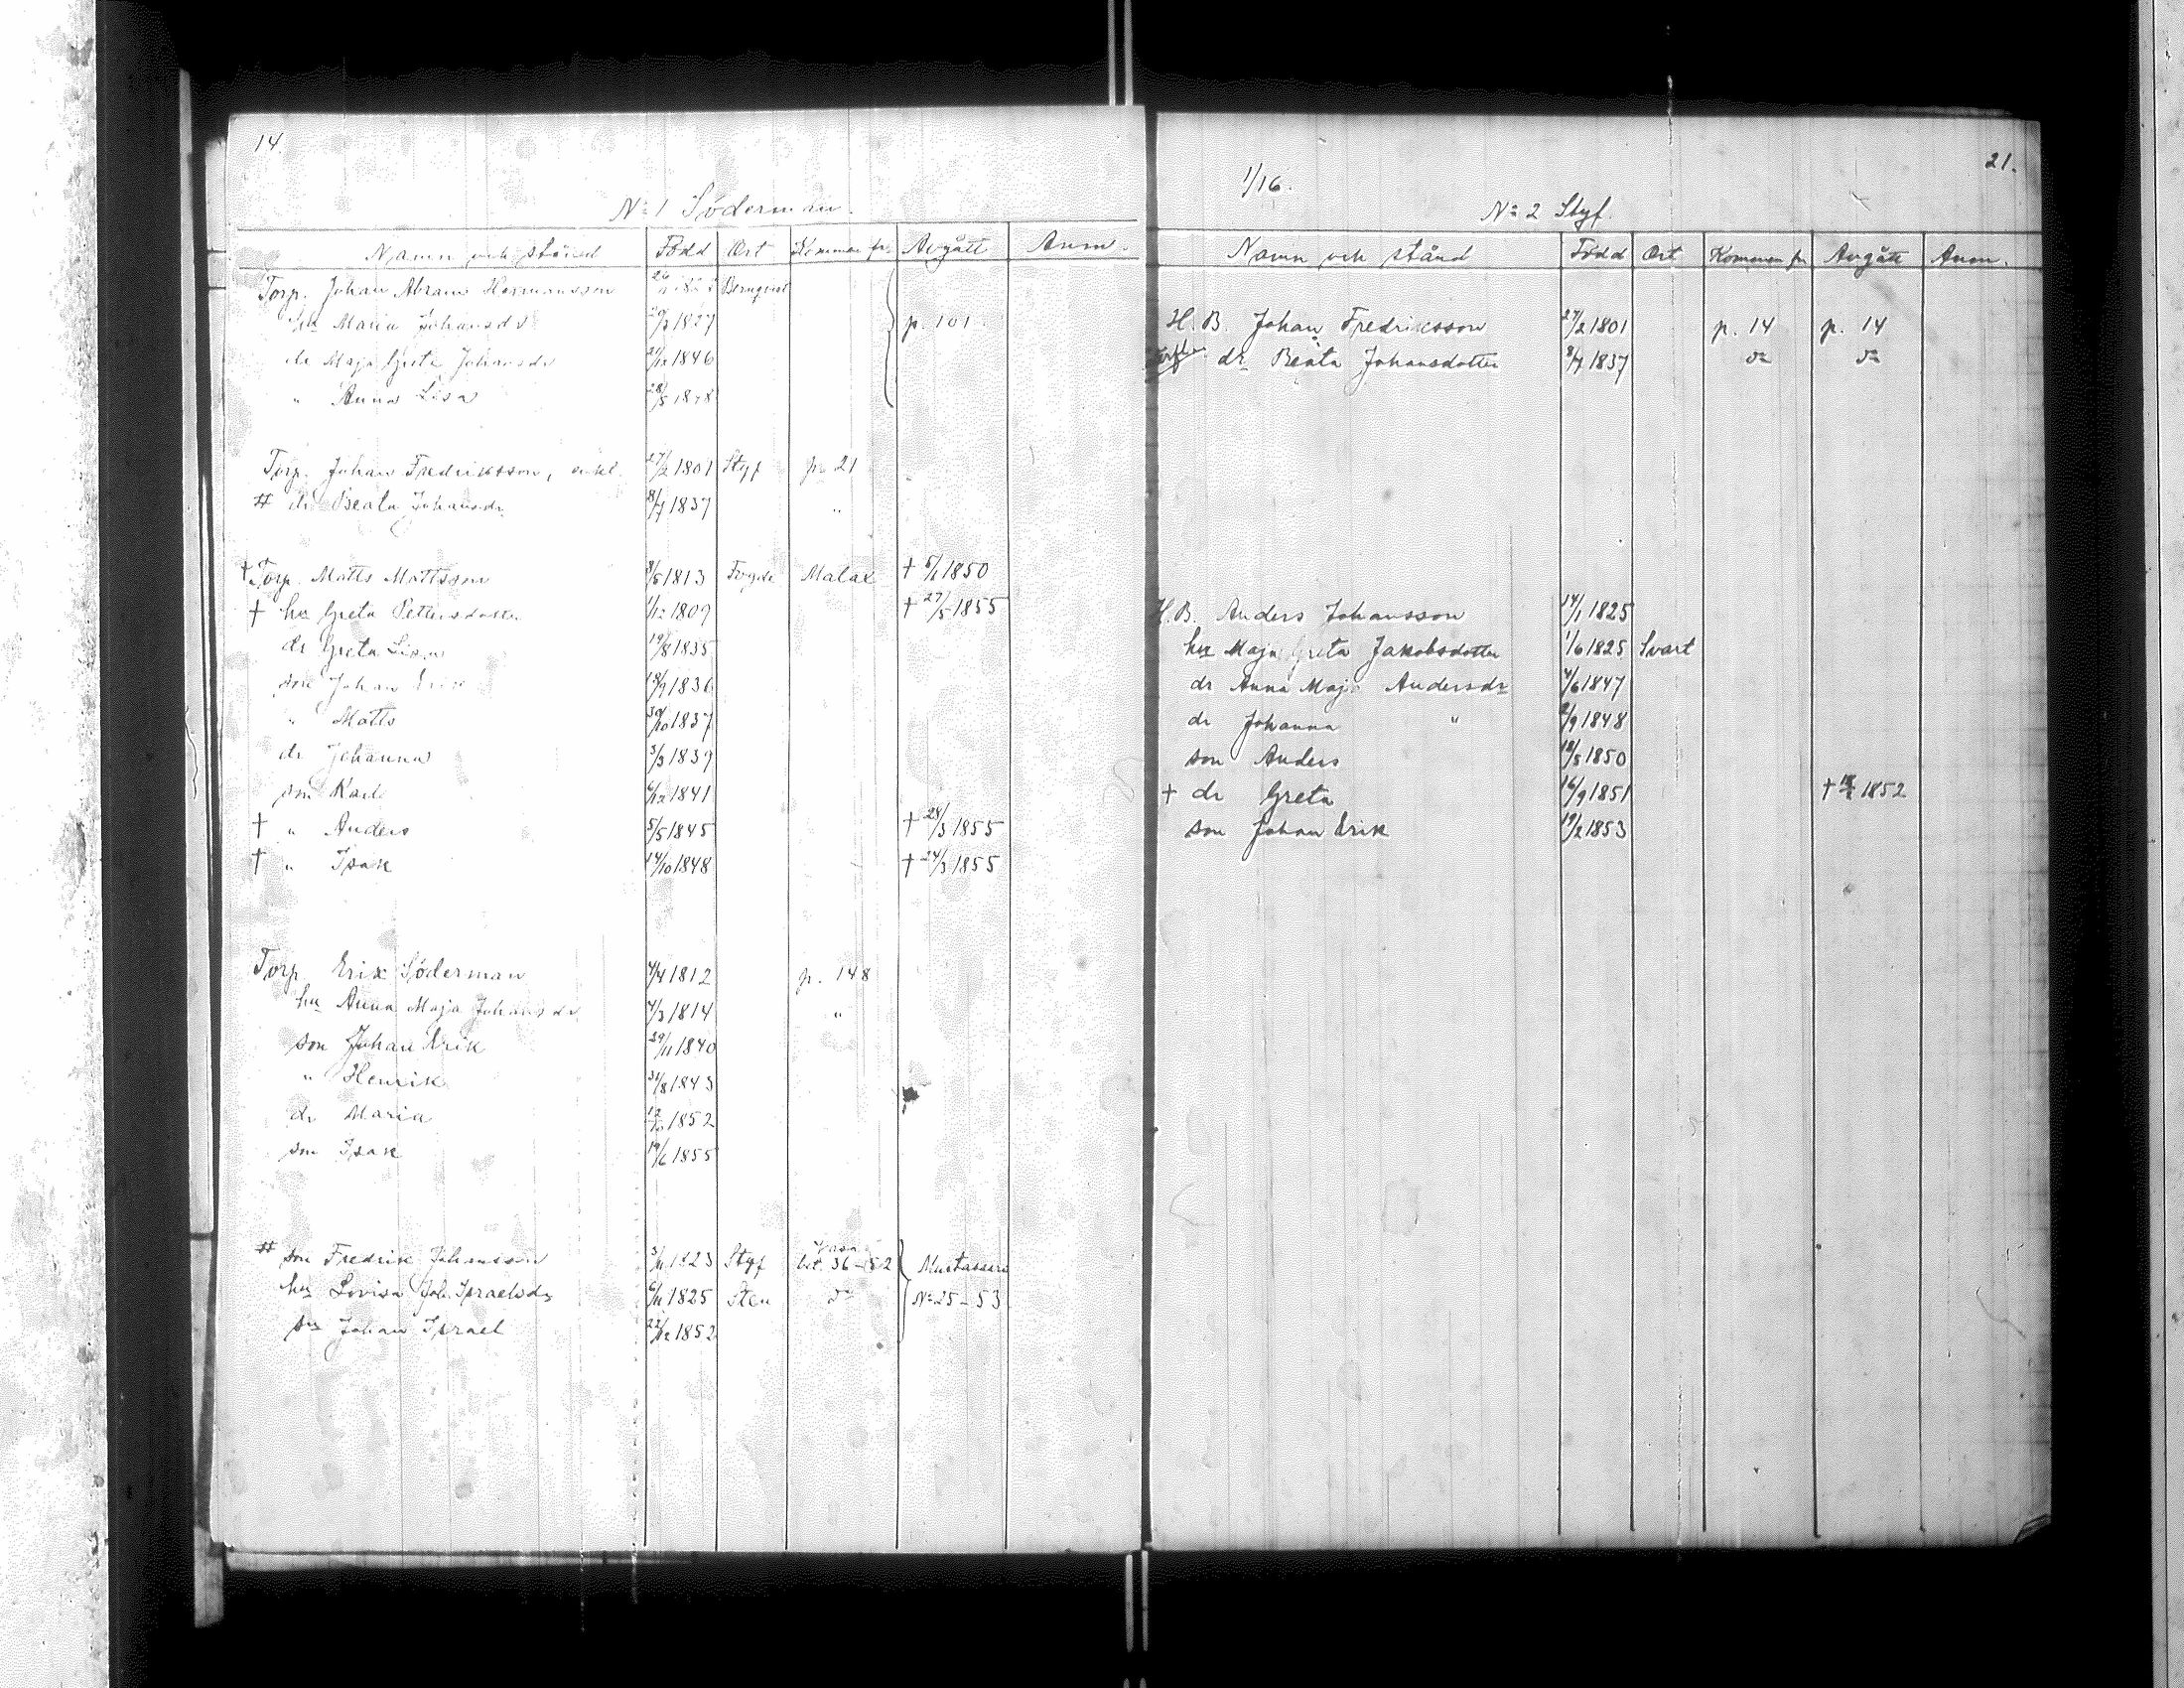 14
Nº 1 Söderman.
Namn och stånd Född Ort Kommen fr. Avgått Anm.
Torp. Johan Abram Hermansson Bernqvist
hu Maria Johansdr 1827 p. 101
dr Maja Greta Johansdr 21/12 1846
" Anna Lisa 28/5
Torp. Johan Fredriksson, enkl. 27/2 1801 Styf p. 21
# dr Beata Johansdr 8/7 1837 "
† Torp. Matts Mattsson 8/5 1813 Fogde Malax † 5/1 1850
† hu Greta Pettersdotter 1/12 1809 † 27/5 1855
dr Greta Lisa 19/8 1835
son Johan Erik 18/9 1836
" Matts 30/10 1837
dr Johanna 3/3 1839
son Karl 6/12 1841
† " Anders 5/5 1845 † 24/3 1855
† " Isak 14/10 1848 † 24/3 1855
Torp. Erik Söderman 4/4 1812 p. 148
hu Anna Maja Johansdr 4/3 1814 "
son Johan Erik 29/11 1840
" Henrik 31/8 1843
dr Maria 12/10 1852
son Isak 19/6 1855
# son Fredrik Johansson 3/11 1823 Styf Vasa bet. 36-52 Mustasaari
hu Lovisa Joh. Israelsdr 6/11 1825 Sten dº Nº 25-53
son Johan Israel 22/12 1852
21.
1/16.
Nº 2 Styf.
Namn och stånd Född Ort Kommen fr Avgått Anm.
H. B. Johan Fredriksson 27/2 1801 p. 14 p. 14
dr Beata Johansdotter 8/7 1837 dº dº
H. B. Anders Johansson 14/1 1825
hu Maja Greta Jakobsdotter 1/6 1825 Svart
dr Anna Maja Andersdr 4/6 1847
dr Johanna " 2/9 1848
son Anders 18/5 1850
† dr Greta 16/9 1851 † 1852
son Johan Erik 19/2 1853